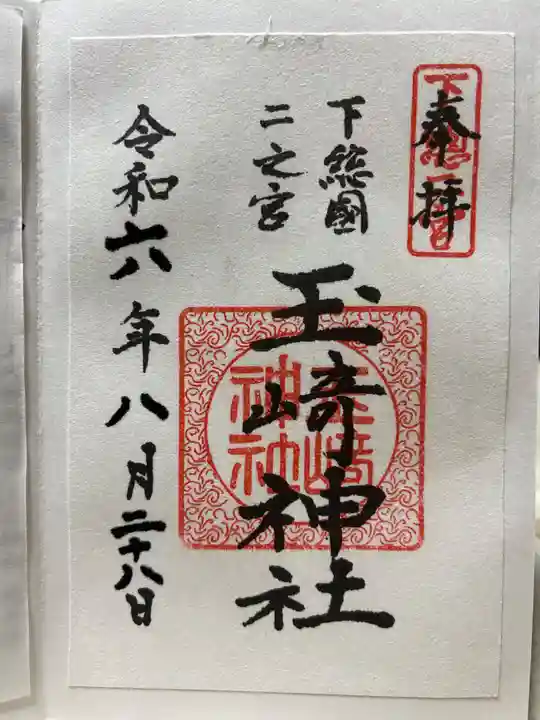 奉拝
下総二之宮
下総國
二之宮
玉﨑神社
玉﨑神社
令和六年八月二十八日